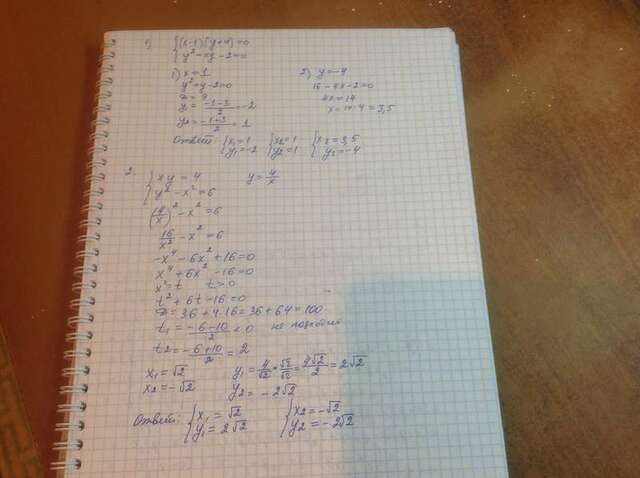 1) {(x-1)(y+4)=0
{y²+xy-2=0
1) x=1
y²+y-2=0
D=9
y=(-1-3)/2=-2
y₂=(-1+3)/2=1
2) y=-4
16-4x-2=0
4x=14
x=14:4=3,5
Ответ {x₁=1 {x₂=1 {x₃=3,5
{y₁=-2 {y₂=1 {y₃=-4
2. {xy=4 y=4/x
{y²-x²=6
(4/x)²-x²=6
16/x²-x²=6
-x⁴-6x²+16=0
x⁴+6x²-16=0
x²=t t>0
t²+6t-16=0
D=36+4·16=36+64=100
t₁=(-6-10)/2<0 не подходит
t₂=(-6+10)/2=2
x₁=√2 y₁=4/√2·√2/√2=4√2/2=2√2
x₂=-√2 y₂=-2√2
Ответ: {x₁=√2 {x₂=-√2
{y₁=2√2 {y₂=-2√2